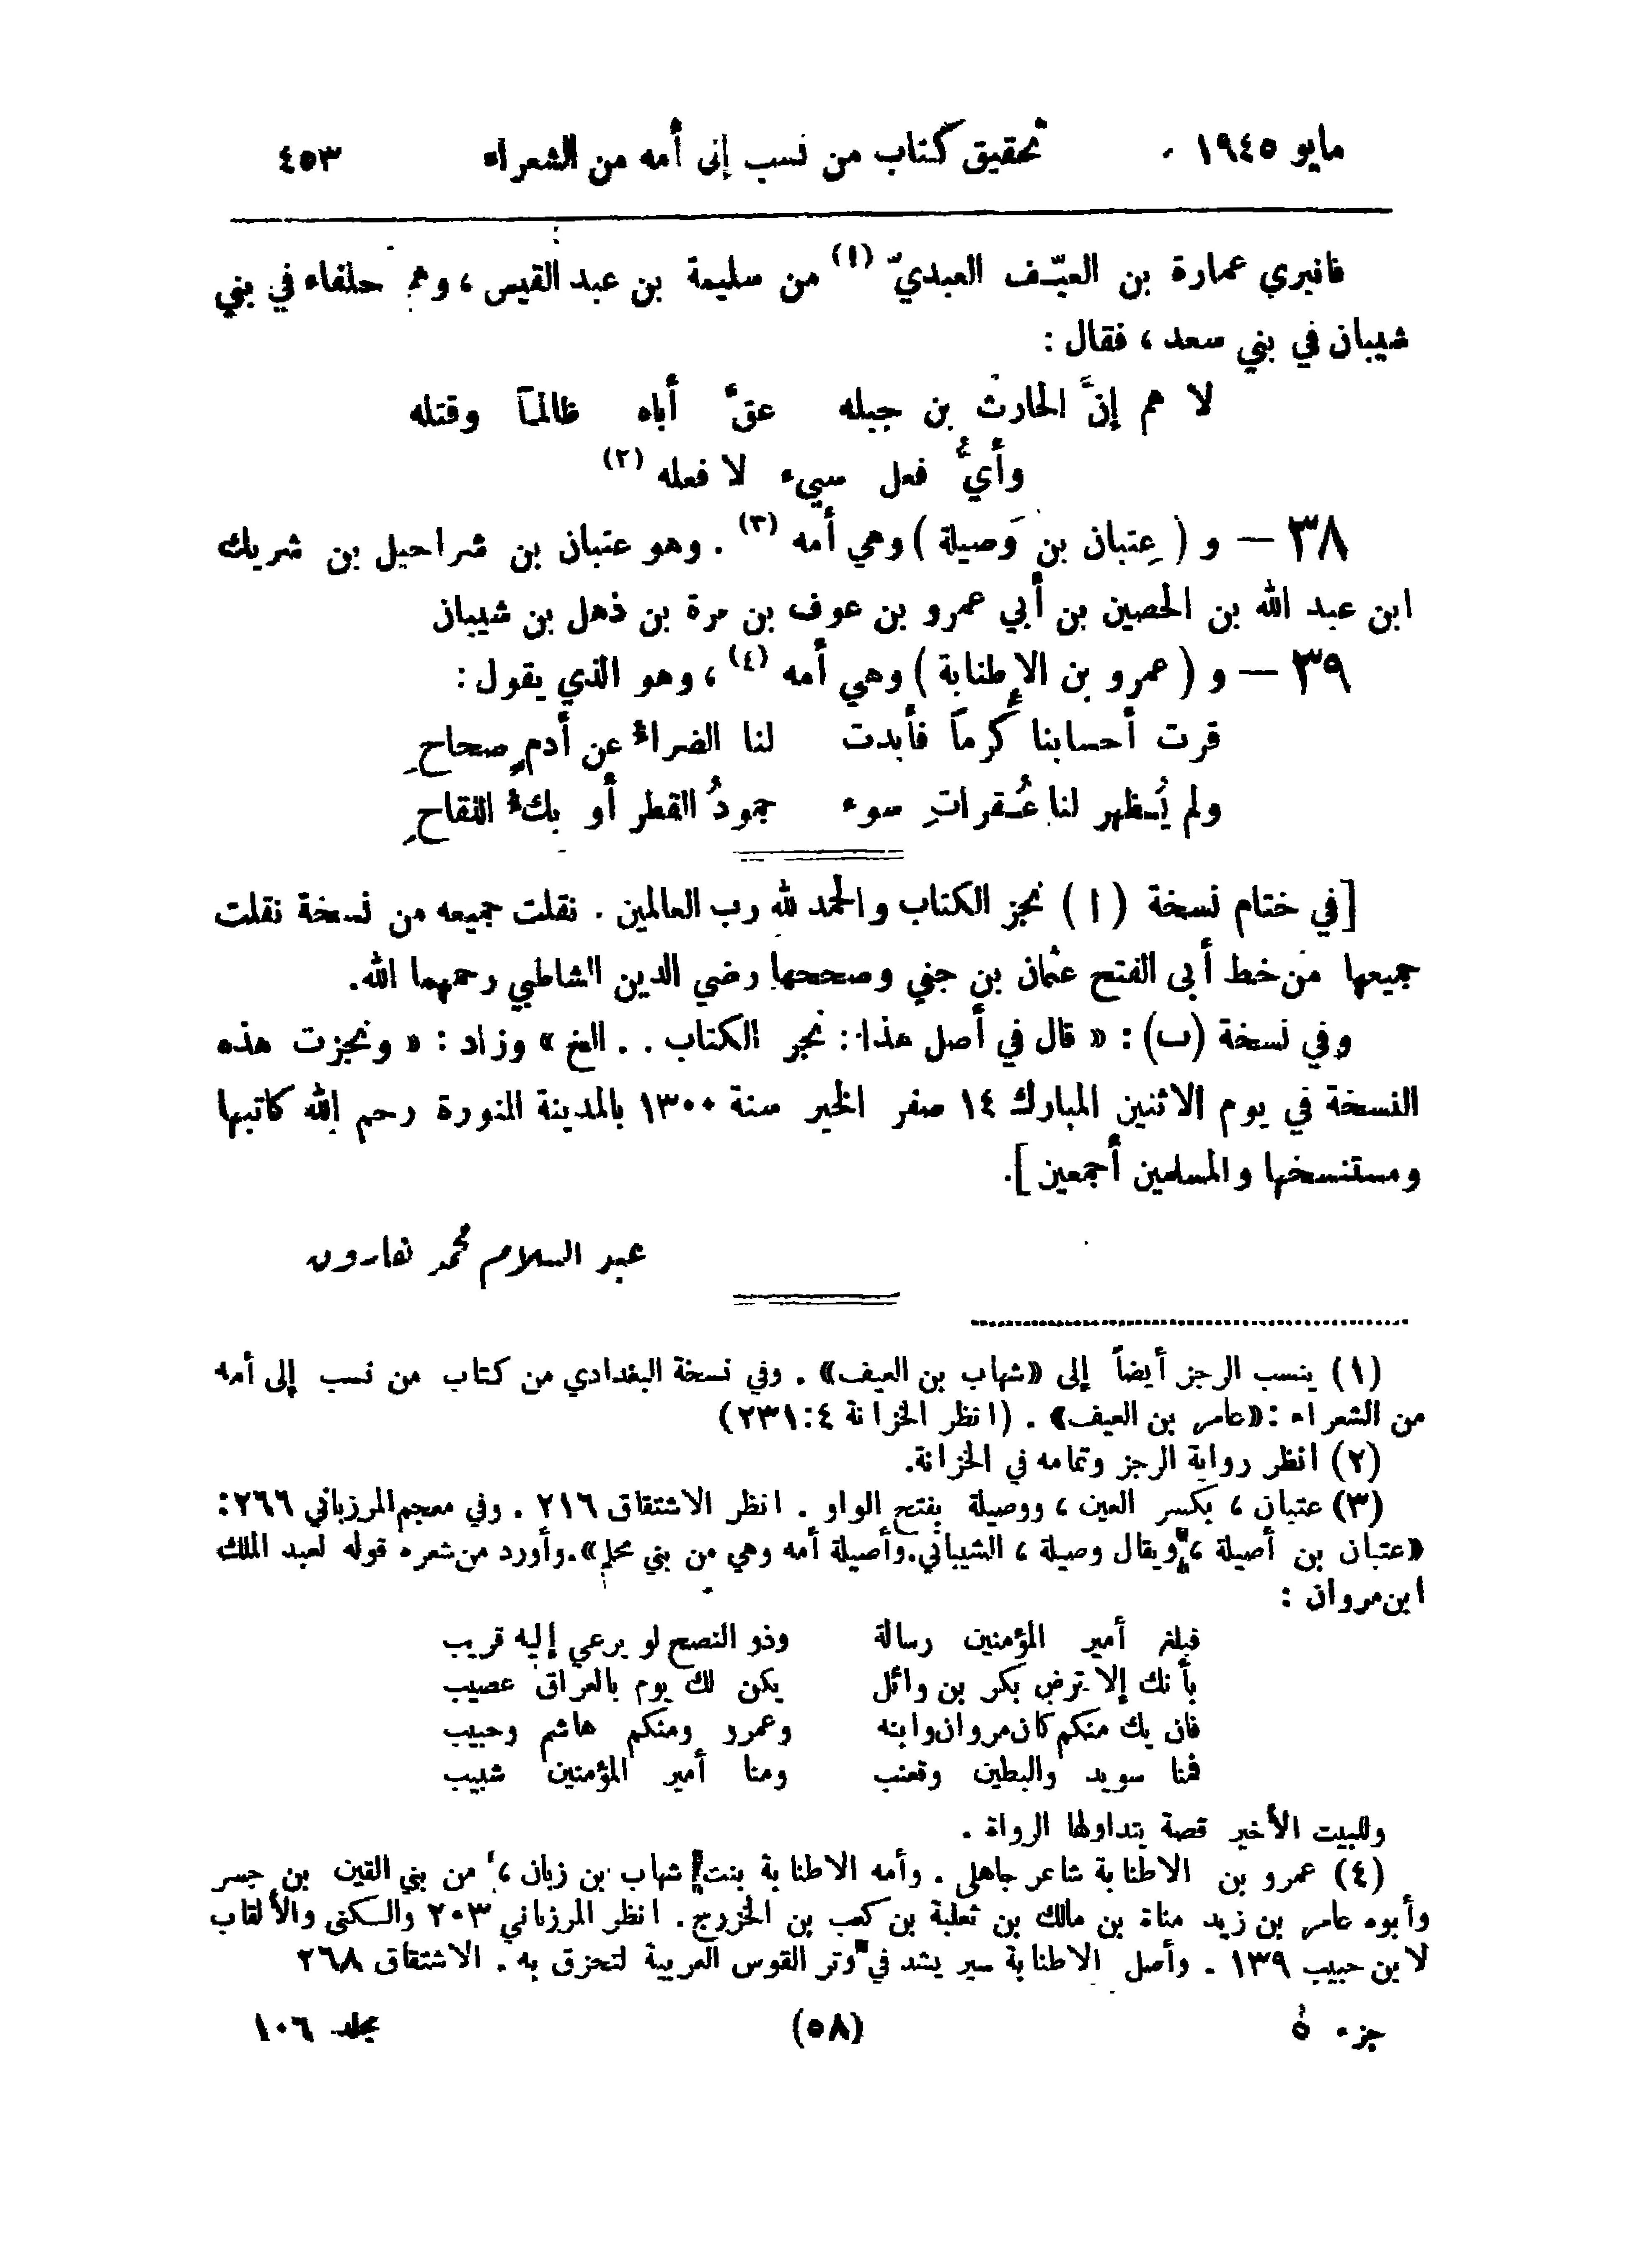 مايو ١٩٤٥ . تحقيق كتاب من نسب إلى أمه من الشعراء ٤٥٣
فانبرى عمارة بن العيّـف العبديّ (١) من سليمة بن عبد القيس ، وهم حلفاء في بني
شيبان في بني سعد ، فقال :
لا هم إنَّ الحارث بن جبله عقَّ أباه ظالماً وقتله
وأيُّ فعل سيىء لا فعله (٢)
٣٨ — و ( عِتبان بن وَصيلة ) وهي أمه (٣) . وهو عتبان بن شراحيل بن شريك
ابن عبد الله بن الحصين بن أبي عمرو بن عوف بن مرة بن ذهل بن شيبان
٣٩ — و ( عمرو بن الإطنابة ) وهي أمه (٤) ، وهو الذي يقول :
قرت أحسابنا كرماً فأبدت لنا الضراءُ عن أدمٍ صحاحِ
ولم يُـظهر لنا عُـقراتِ سوء جمودُ القطر أو بكءُ اللقاحِ
[في ختام نسخة ( ا ) نجز الكتاب والحمد لله رب العالمين . نقلت جميعه من نسخة نقلت
جميعها من خط أبى الفتح عثمان بن جني وصححها رضي الدين الشاطبي رحمهما الله.
وفي نسخة (ب) : « قال في أصل هذا : نجز الكتاب . . الخ » وزاد : « ونجزت هذه
النسخة في يوم الاثنين المبارك ١٤ صفر الخير سنة ١٣٠٠ بالمدينة المنورة رحم الله كاتبها
ومستنسخها والمسلمين أجمعين ].
عبد السلام محمد هارون
(١) ينسب الرجز أيضاً إلى «شهاب بن العيف» . وفي نسخة البغدادي من كتاب من نسب إلى أمه
من الشعراء : «عامر بن العيف» . (انظر الخزانة ٤ : ٢٣١)
(٢) انظر رواية الرجز وتمامه في الخزانة.
(٣) عتبان ، بكسر العين ، ووصيلة بفتح الواو . انظر الاشتقاق ٢١٦ . وفي معجم المرزباني ٢٦٦ :
«عتبان بن أصيلة ، ويقال وصيلة ، الشيباني. وأصيلة أمه وهي من بني محلم». وأورد من شعره قوله لعبد الملك
ابن مروان :
فبلغ أمير المؤمنين رسالة وذو النصح لو يرعي إليه قريب
بأنك إلا ترض بكر بن وائل يكن لك يوم بالعراق عصيب
فان يك منكم كان مروان وابنه وعمرو ومنكم هاشم وحبيب
فمنا سويد والبطين وقعنب ومنا أمير المؤمنين شبيب
وللبيت الأخير قصة يتداولها الرواة .
(٤) عمرو بن الاطنابة شاعر جاهلي . وأمه الاطنابة بنت شهاب بن زبان ، من بني القين بن جسر
وأبوه عامر بن زيد مناة بن مالك بن ثعلبة بن كعب بن الخزرج . انظر المرزباني ٢٠٣ والسكنى والألقاب
لابن حبيب ١٣٩ . وأصل الاطنابة سير يشد في وتر القوس العربية لتحزق به . الاشتقاق ٢٦٨
جزء ٥ (٥٨) مجلد ١٠٦